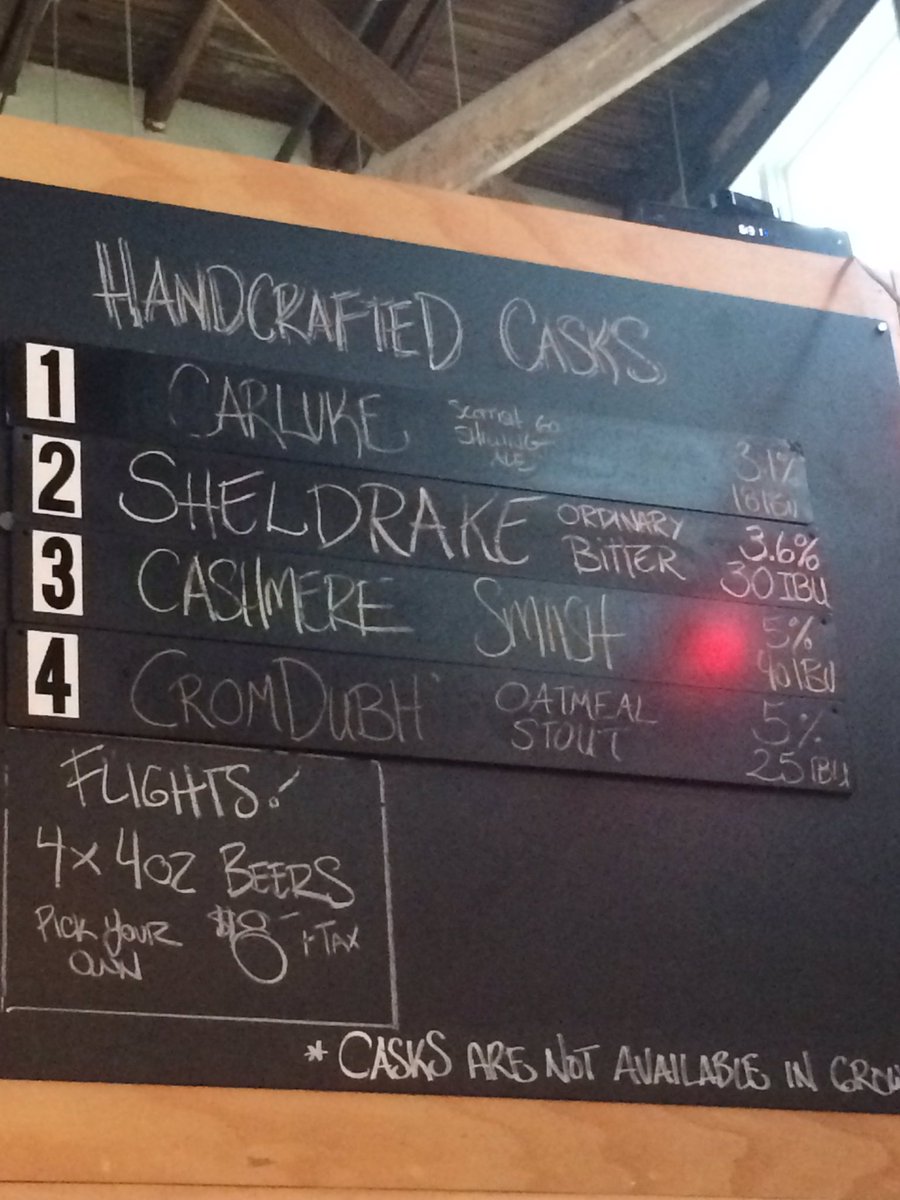 HANDCRAFTED CASKS
1 CARLUKE
SCOTTISH 60
SHILLING
ALE
3.1%
18 IBU
2 SHELDRAKE
ORDINARY
BITTER
3.6%
30 IBU
3 CASHMERE SMASH
5%
40 IBU
4 CROMDUBH
OATMEAL
STOUT
5%
25 IBU
FLIGHTS!
4x 4oz BEERS
PICK YOUR
OWN
$8 +TAX
* CASKS ARE NOT AVAILABLE IN GROW